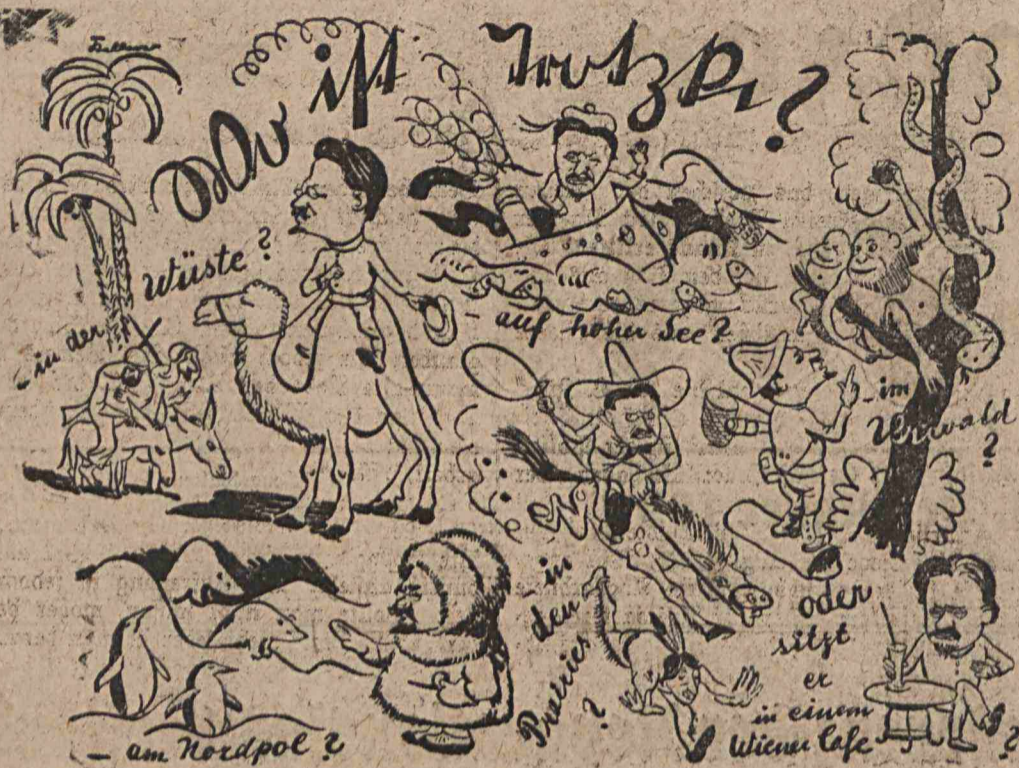 Wo ist Trotzki?
- in der Wüste?
- auf hoher See?
- im
Urwald
?
- am Nordpol?
in
den
Prairies
?
oder
sitzt
er
in einem
Wiener Cafe
?